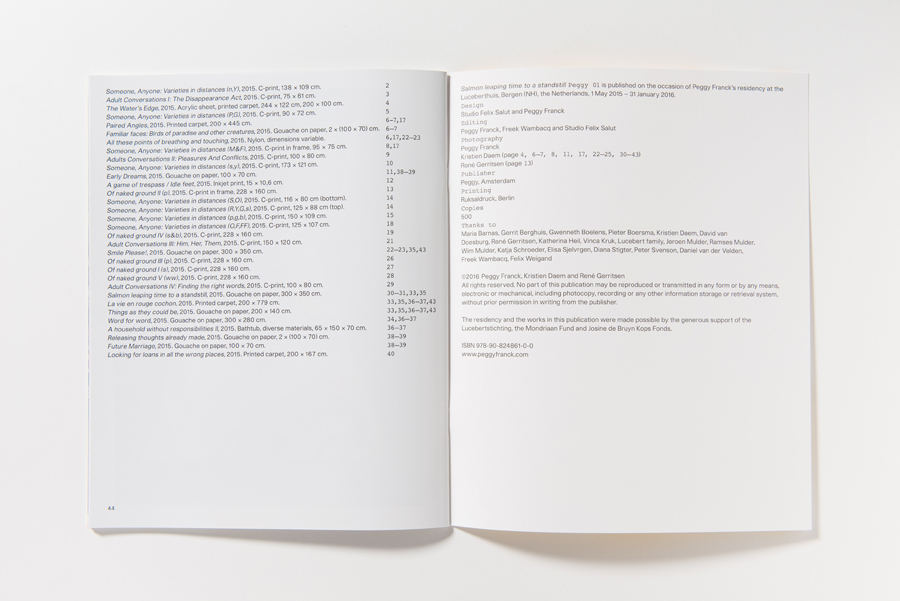 Someone, Anyone: Varieties in distances (n,Y), 2015. C-print, 138 × 109 cm. 2
Adult Conversations I: The Disappearance Act, 2015. C-print, 75 × 61 cm. 3
The Water's Edge, 2015. Acrylic sheet, printed carpet, 244 × 122 cm, 200 × 100 cm. 4
Someone, Anyone: Varieties in distances (P,G), 2015. C-print, 90 × 72 cm. 5
Paired Angles, 2015. Printed carpet, 200 × 445 cm. 6–7,17
Familiar faces: Birds of paradise and other creatures, 2015. Gouache on paper, 2 × (100 × 70) cm. 6–7
All these points of breathing and touching, 2015. Nylon, dimensions variable. 6,17,22–23
Someone, Anyone: Varieties in distances (M&F), 2015. C-print in frame, 95 × 75 cm. 8,17
Adults Conversations II: Pleasures And Conflicts, 2015. C-print, 100 × 80 cm. 9
Someone, Anyone: Varieties in distances (s,y), 2015. C-print, 173 × 121 cm. 10
Early Dreams, 2015. Gouache on paper, 100 × 70 cm. 11,38–39
A game of trespass / Idle feet, 2015. Inkjet print, 15 × 10,6 cm. 12
Of naked ground II (p), 2015. C-print in frame, 228 × 160 cm. 13
Someone, Anyone: Varieties in distances (S,O), 2015. C-print, 116 × 80 cm (bottom). 14
Someone, Anyone: Varieties in distances (R,Y,G,s), 2015. C-print, 125 × 88 cm (top). 14
Someone, Anyone: Varieties in distances (p,g,b), 2015. C-print, 150 × 109 cm. 15
Someone, Anyone: Varieties in distances (O,F,FF), 2015. C-print, 125 × 107 cm. 18
Of naked ground IV (s&b), 2015. C-print, 228 × 160 cm. 19
Adult Conversations III: Him, Her, Them, 2015. C-print, 150 × 120 cm. 21
Smile Please!, 2015. Gouache on paper, 300 × 350 cm. 22–23,35,43
Of naked ground III (p), 2015. C-print, 228 × 160 cm. 26
Of naked ground I (s), 2015. C-print, 228 × 160 cm. 27
Of naked ground V (ww), 2015. C-print, 228 × 160 cm. 28
Adult Conversations IV: Finding the right words, 2015. C-print, 100 × 80 cm. 29
Salmon leaping time to a standstill, 2015. Gouache on paper, 300 × 350 cm. 30–31,33,35
La vie en rouge cochon, 2015. Printed carpet, 200 × 779 cm. 33,35,36–37,43
Things as they could be, 2015. Gouache on paper, 200 × 140 cm. 33,35,36–37,43
Word for word, 2015. Gouache on paper, 300 × 280 cm. 34,36–37
A household without responsibilities II, 2015. Bathtub, diverse materials, 65 × 150 × 70 cm. 36–37
Releasing thoughts already made, 2015. Gouache on paper, 2 × (100 × 70) cm. 38–39
Future Marriage, 2015. Gouache on paper, 100 × 70 cm. 38–39
Looking for loans in all the wrong places, 2015. Printed carpet, 200 × 167 cm. 40
44
Salmon leaping time to a standstill Peggy 01 is published on the occasion of Peggy Franck's residency at the
Luceberthuis, Bergen (NH), the Netherlands, 1 May 2015 – 31 January 2016.
Design
Studio Felix Salut and Peggy Franck
Editing
Peggy Franck, Freek Wambacq and Studio Felix Salut
Photography
Peggy Franck
Kristien Daem (page 4, 6–7, 8, 11, 17, 22–25, 30–43)
René Gerritsen (page 13)
Publisher
Peggy, Amsterdam
Printing
Ruksaldruck, Berlin
Copies
500
Thanks to
Maria Barnas, Gerrit Berghuis, Gwenneth Boelens, Pieter Boersma, Kristien Daem, David van
Doesburg, René Gerritsen, Katherina Heil, Vinca Kruk, Lucebert family, Jeroen Mulder, Ramses Mulder,
Wim Mulder, Katja Schroeder, Elisa Sjelvrgen, Diana Stigter, Peter Svenson, Daniel van der Velden,
Freek Wambacq, Felix Weigand
©2016 Peggy Franck, Kristien Daem and René Gerritsen
All rights reserved. No part of this publication may be reproduced or transmitted in any form or by any means,
electronic or mechanical, including photocopy, recording or any other information storage or retrieval system,
without prior permission in writing from the publisher.
The residency and the works in this publication were made possible by the generous support of the
Lucebertstichting, the Mondriaan Fund and Josine de Bruyn Kops Fonds.
ISBN 978-90-824861-0-0
www.peggyfranck.com